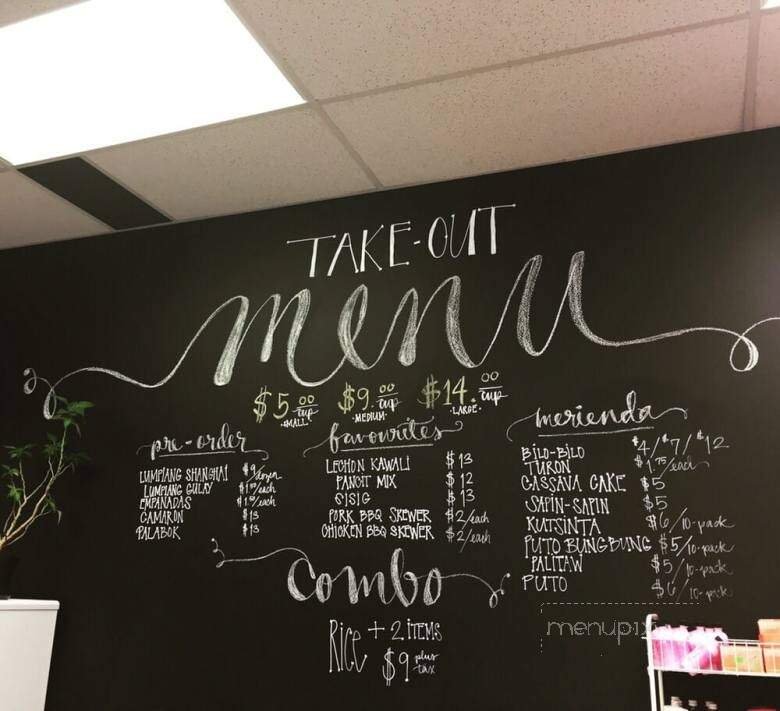 TAKE-OUT
menu
$5.00/cup $9.00/cup $14.00/cup
·SMALL· ·MEDIUM· ·LARGE·
pre-order
LUMPIANG SHANGHAI $9/dozen
LUMPIANG GULAY /each
EMPANADAS /each
CAMARON $13
PALABOK $13
favourites
LECHON KAWALI $13
PANCIT MIX $12
SISIG $13
PORK BBQ SKEWER $2/each
CHICKEN BBQ SKEWER $2/each
merienda
BILO-BILO $4/$7/$12
TURON $1.75/each
CASSAVA CAKE $5
SAPIN-SAPIN $5
KUTSINTA $6/10-pack
PUTO BUNGBUNG $5/10-pack
PALITAW $5/10-pack
PUTO $6/10-pack
combo
Rice + 2 ITEMS
$9 plus tax
menupix